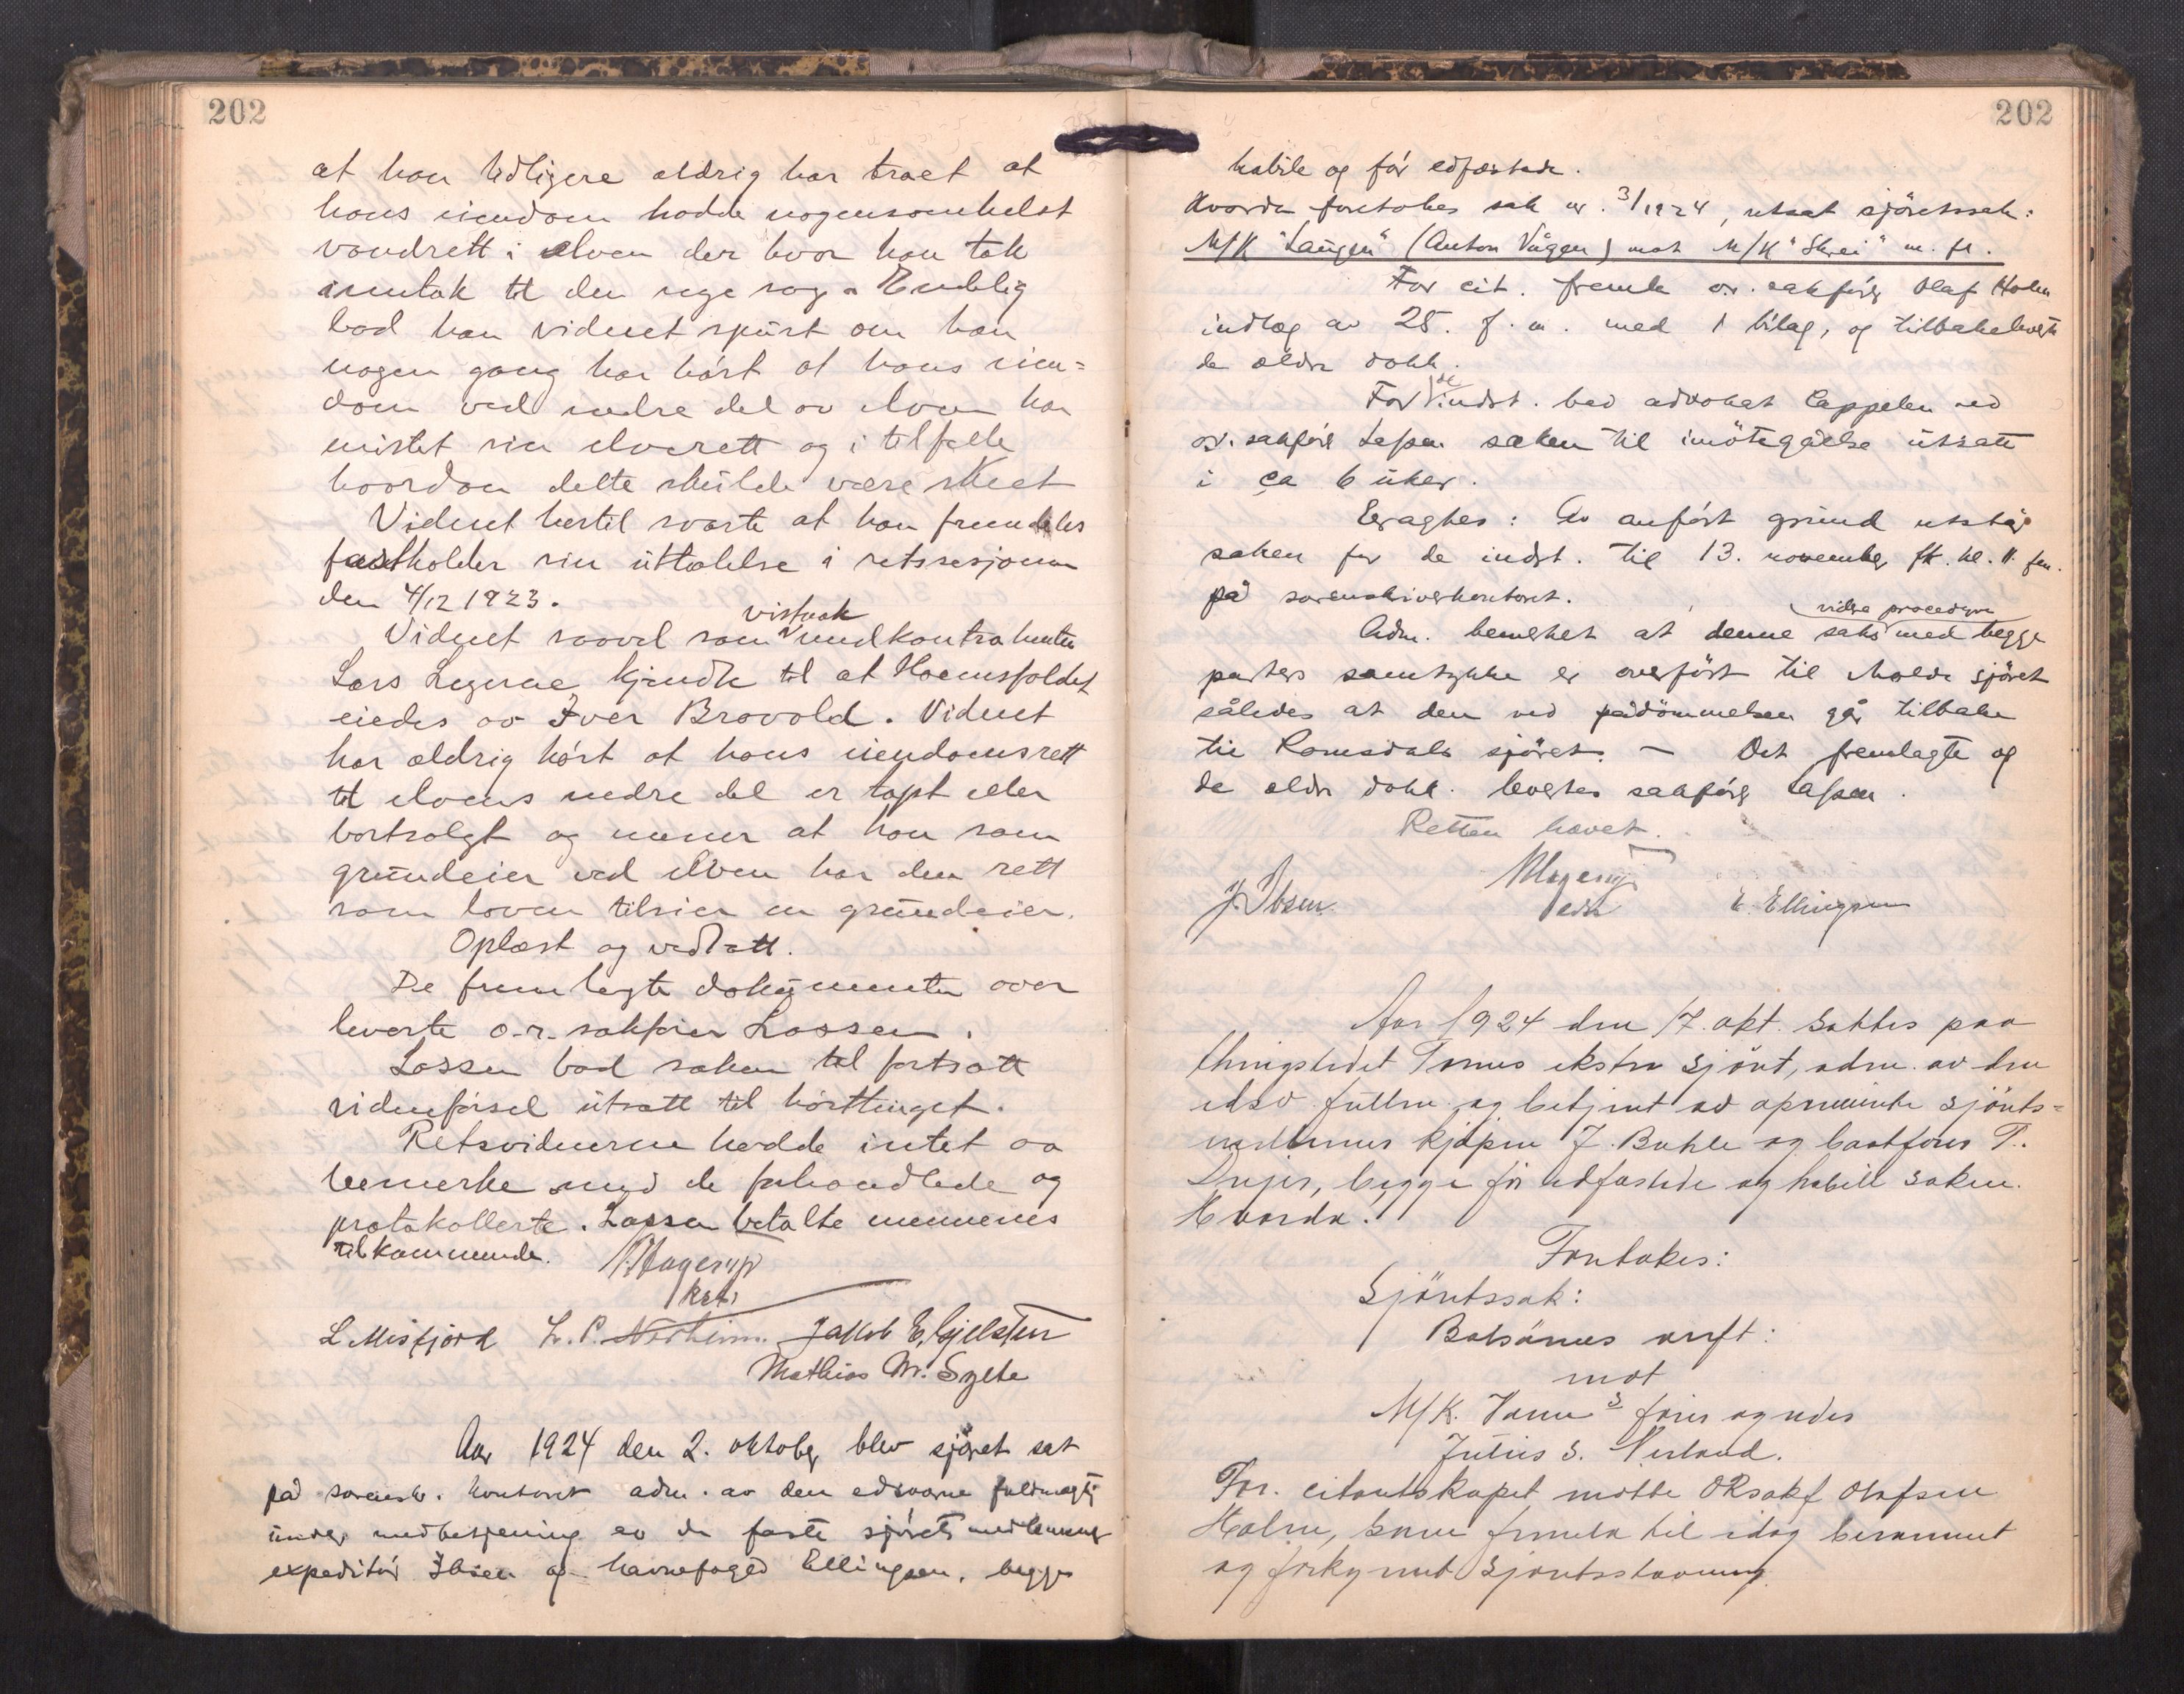 202
at han tidligere aldrig har traet at
hans eiendom hadde nogensomhelst
vandrett i elven der hvor han tok
inntak til den nye sag. Endelig
bad han vidnet spurt om han
nogen gang har hørt at hans eien=
dom ved nedre del av elven har
mistet sin elverett og i tilfelle
hvordan dette skulde være skeet
Vidnet hertil svarte at han fremdeles
fastholder sin uttalelse i retssesjonen
den 4/12 1923.
Vidnet saavel som visstnok medkontrahenten
Lars Legerne kjendte til at Hoemsfoldet
eiedes av Iver Brovold. Vidnet
har aldrig hørt at hans eiendomsrett
til elvens nedre del er tapt eller
bortsolgt og mener at han som
grundeier ved elven har den rett
som loven tilsier en grundeier.
Oplæst og vedtatt.
De fremlagte dokumenter over
leverte o.r.sakfører Lassen.
Lassen bad saken til fortsatt
vidneførsel utsatt til høsttinget.
Retsvidnerne hadde intet aa
bemerke mod de forhandlede og
protokollerte. Lassen betalte mennenes
tilkommende. Hagerup
L Misfjord L. P. Nerheim. Jakob E. Gjelsten
Mathias M. Sylte
Aar 1924 den 2. oktober blev sjøret sat
på sorenskr. kontoret adm. av den edsvorne fuldmegtig
under medbetjening av de faste sjøretsmedlemmer
expeditør Ibsen og havnefoged Ellingsen, begge
202
habile og før edfæstede.
Hvorda foretokes sak nr. 3/1924, utsat sjøretssak:
M/K "Laugen" (Anton Vågen) mot M/K "Skrei" m. fl.
For cit. fremla o.r. sakfører Olaf Holm
indlæg av 25. f. m. med 1 bilag, og tilbakeleverte
de eldre dokk.
For de indst. bad advokat Cappelen ved
o.r. sakfører Lassen saken til imøtegåelse utsatt
i ca 6 uker.
Eragtes: Av anført grund utstår
saken for de indst. til 13. november fk. kl. 11 fm.
på sorenskriverkontoret.
Adm. bemerket at denne saks videre procedyre med begge
parters samtykke er overført til Molde sjøret
således at den ved pådømmelsen går tilbake
til Romsdals sjøret. — Det fremlagte og
de eldre dokk. levertes sakfører Lassen.
Retten hævet.
J. Ibsen. Hagerup E. Ellingsen
Aar 1924 den 17. okt. sattes paa
thingstedet Tornes ekstra sjøret, adm. av den
edsv. fullm. og betjent av opnævnte sjørets=
medlemmer kjøpm J. Bakle og baatfører T.
begge før edfæstede og habile i saken.
Hvorda.
Foretokes:
Sjøretssak:
mot
M/K. fører og reder
Julius S. Nerland.
For citantskapet møtte ORsakf Olafsen
Holm, som fremla til idag berammet
og forkynnt sjøretsstevning